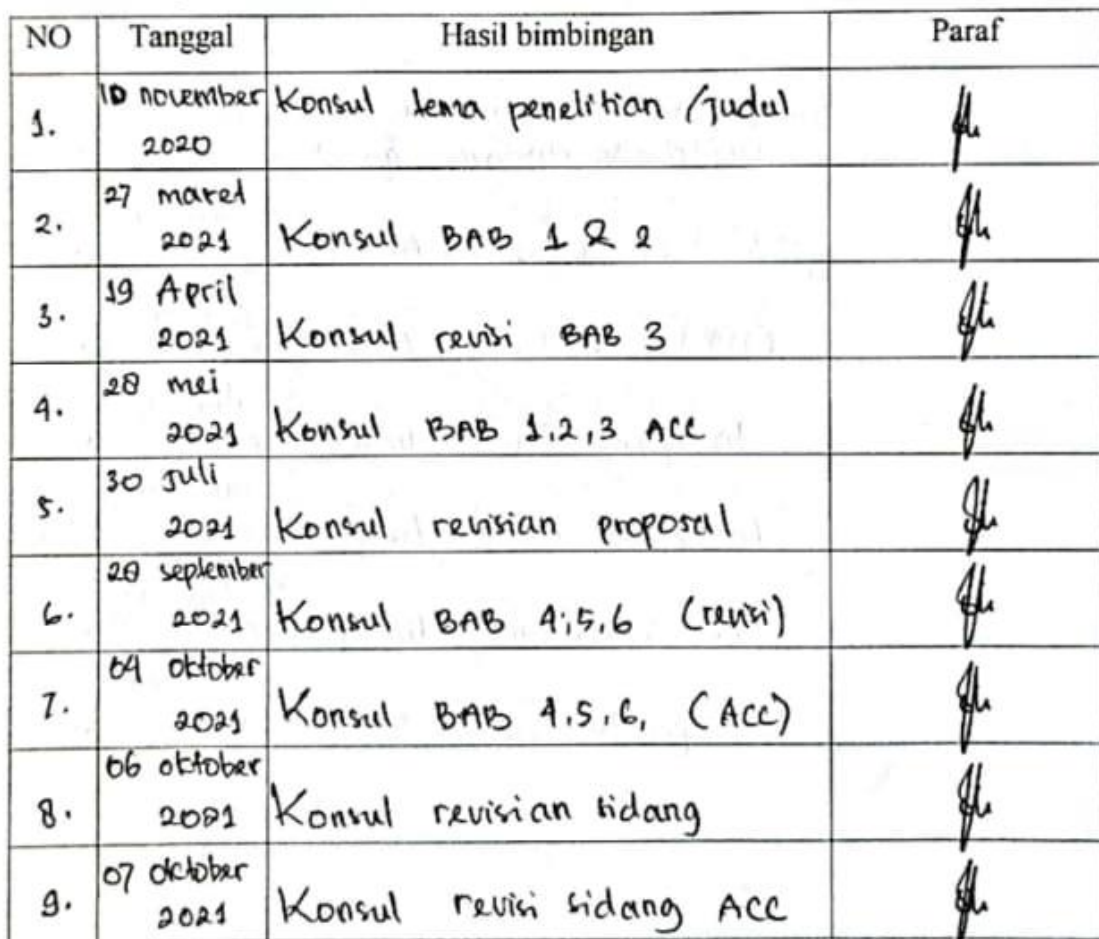 NO Tanggal Hasil bimbingan Paraf
1. 10 november 2020 Konsul tema penelitian /Judul
2. 27 maret 2021 Konsul BAB 1 & 2
3. 19 April 2021 Konsul revisi BAB 3
4. 28 mei 2021 Konsul BAB 1,2,3 ACC
5. 30 Juli 2021 Konsul revisian proposal
6. 28 september 2021 Konsul BAB 4,5,6 (revisi)
7. 04 oktober 2021 Konsul BAB 4,5,6, (ACC)
8. 06 oktober 2021 Konsul revisian sidang
9. 07 oktober 2021 Konsul revisi sidang ACC